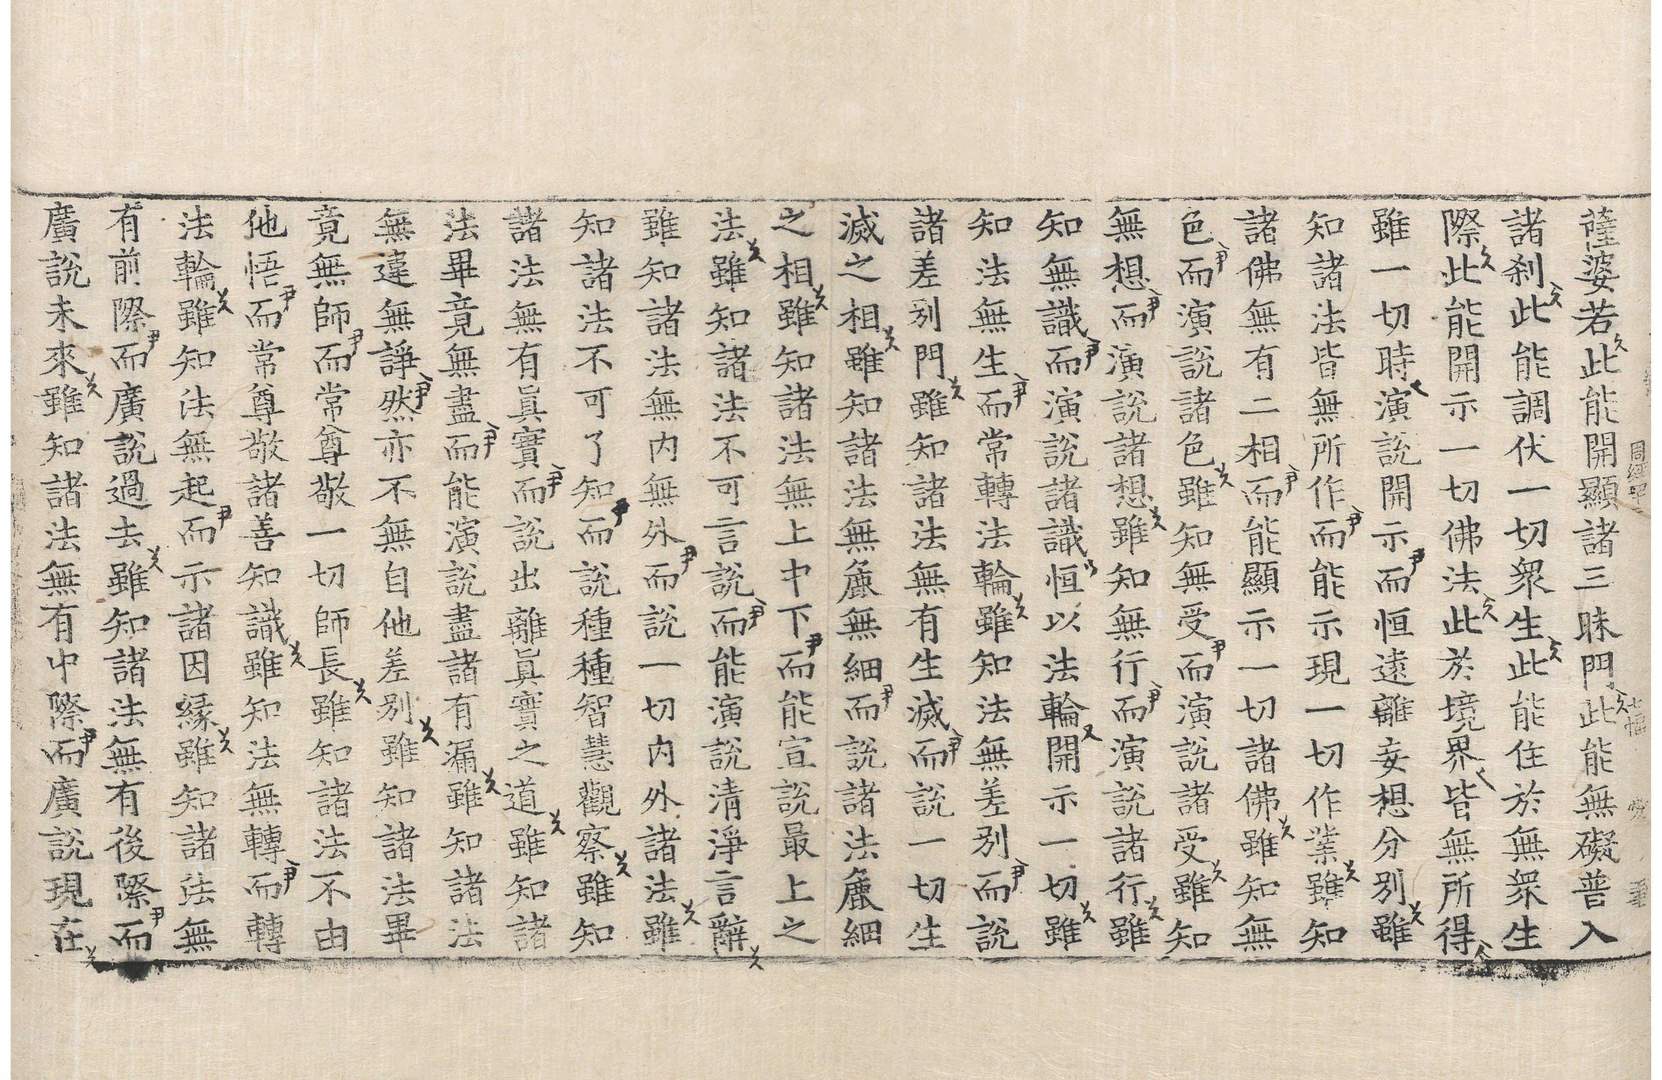 薩婆若此能開顯諸三昧門此能無礙普入
諸刹此能調伏一切衆生此能住於無衆生
際此能開示一切佛法此於境界皆無所得
雖一切時演說開示而恒遠離妄想分別雖
知諸法皆無所作而能示現一切作業雖知
諸佛無有二相而能顯示一切諸佛雖知無
色而演說諸色雖知無受而演說諸受雖知
無想而演說諸想雖知無行而演說諸行雖
知無識而演說諸識恒以法輪開示一切雖
知法無生而常轉法輪雖知法無差別而說
諸差別門雖知諸法無有生滅而說一切生
滅之相雖知諸法無麁無細而說諸法麁細
之相雖知諸法無上中下而能宣說最上之
法雖知諸法不可言說而能演說清淨言辭
雖知諸法無内無外而說一切内外諸法雖
知諸法不可了知而說種種智慧觀察雖知
諸法無有眞實而說出離眞實之道雖知諸
法畢竟無盡而能演說盡諸有漏雖知諸法
無違無諍然亦不無自他差別雖知諸法畢
竟無師而常尊敬一切師長雖知諸法不由
他悟而常尊敬諸善知識雖知法無轉而轉
法輪雖知法無起而示諸因緣雖知諸法無
有前際而廣說過去雖知諸法無有後際而
廣說未來雖知諸法無有中際而廣說現在